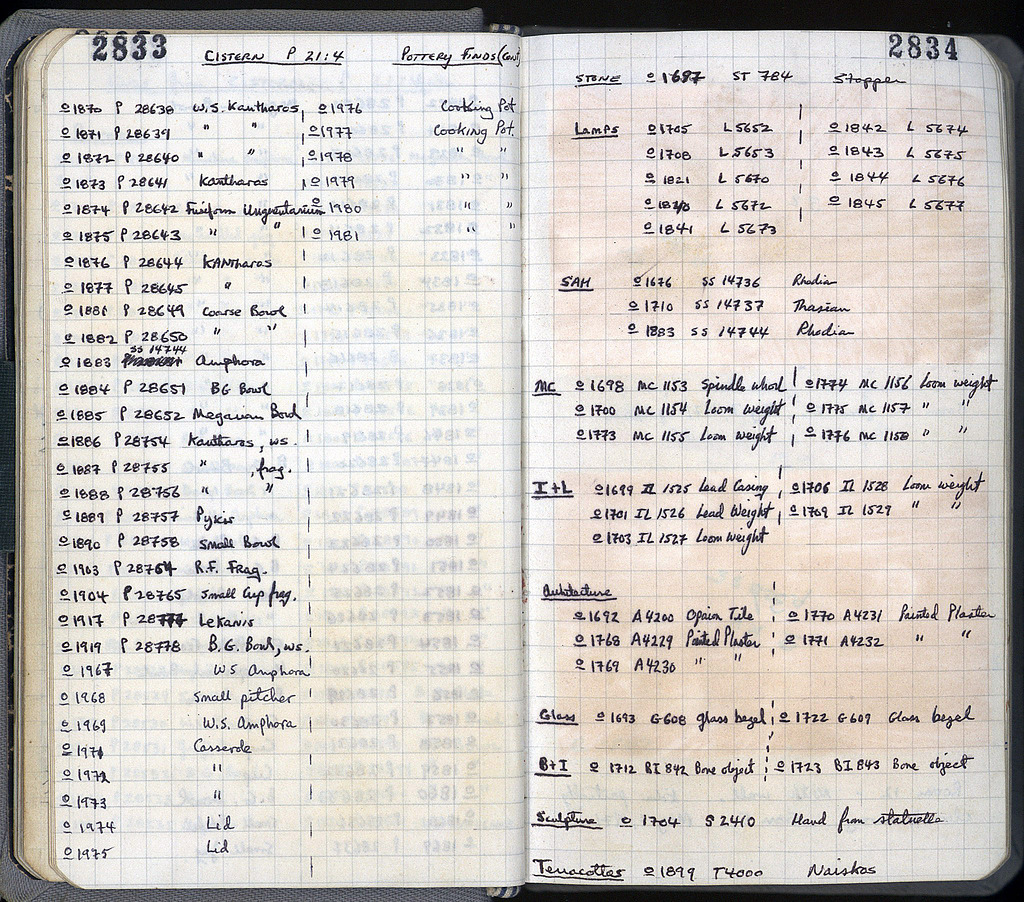 2833
CISTERN P 21:4 POTTERY FINDS (Cont)
o 1870 P 28638 W.S. Kantharos
o 1871 P 28639 " "
o 1872 P 28640 " "
o 1873 P 28641 Kantharos
o 1874 P 28642 Fusiform Unguentarium
o 1875 P 28643 " "
o 1876 P 28644 KANtharos
o 1877 P 28645 "
o 1881 P 28649 Coarse Bowl
o 1882 P 28650 " "
o 1883 SS 14744 Amphora
o 1884 P 28651 BG Bowl
o 1885 P 28652 Megarian Bowl
o 1886 P 28754 Kantharos, ws.
o 1887 P 28755 " , frag.
o 1888 P 28756 " "
o 1889 P 28757 Pyxis
o 1890 P 28758 Small Bowl
o 1903 P 28764 R.F. Frag.
o 1904 P 28765 Small Cup frag.
o 1917 P 28777 Lekanis
o 1919 P 28778 B.G. Bowl, ws.
o 1967 WS Amphora
o 1968 Small pitcher
o 1969 W.S. Amphora
o 1971 Casserole
o 1972 "
o 1973 "
o 1974 Lid
o 1975 Lid
o 1976 Cooking Pot
o 1977 Cooking Pot.
o 1978 " "
o 1979 " "
o 1980 " "
o 1981 " "
2834
STONE o 1687 ST 784 Stopper
LAMPS o 1705 L 5652 o 1842 L 5674
o 1708 L 5653 o 1843 L 5675
o 1821 L 5670 o 1844 L 5676
L 5672 o 1845 L 5677
o 1841 L 5673
SAH o 1676 SS 14736 Rhodian
o 1710 SS 14737 Thasian
o 1883 SS 14744 Rhodian
MC o 1698 MC 1153 Spindle whorl o 1774 MC 1156 Loom weight
o 1700 MC 1154 Loom weight o 1775 MC 1157 " "
o 1773 MC 1155 Loom weight o 1776 MC 1158 " "
I+L o 1699 IL 1525 Lead Casing o 1706 IL 1528 Loom weight
o 1701 IL 1526 Lead Weight o 1709 IL 1529 " "
o 1703 IL 1527 Loom weight
Architecture
o 1692 A 4200 Opaion Tile o 1770 A 4231 Painted Plaster
o 1768 A 4229 Painted Plaster o 1771 A 4232 " "
o 1769 A 4230 " "
Glass o 1693 G 608 glass bezel o 1722 G 609 Glass bezel
B+I o 1712 BI 842 Bone object o 1723 BI 843 Bone object
Sculpture o 1704 S 2410 Hand from statuette
Terracottas o 1899 T 4000 Naiskos